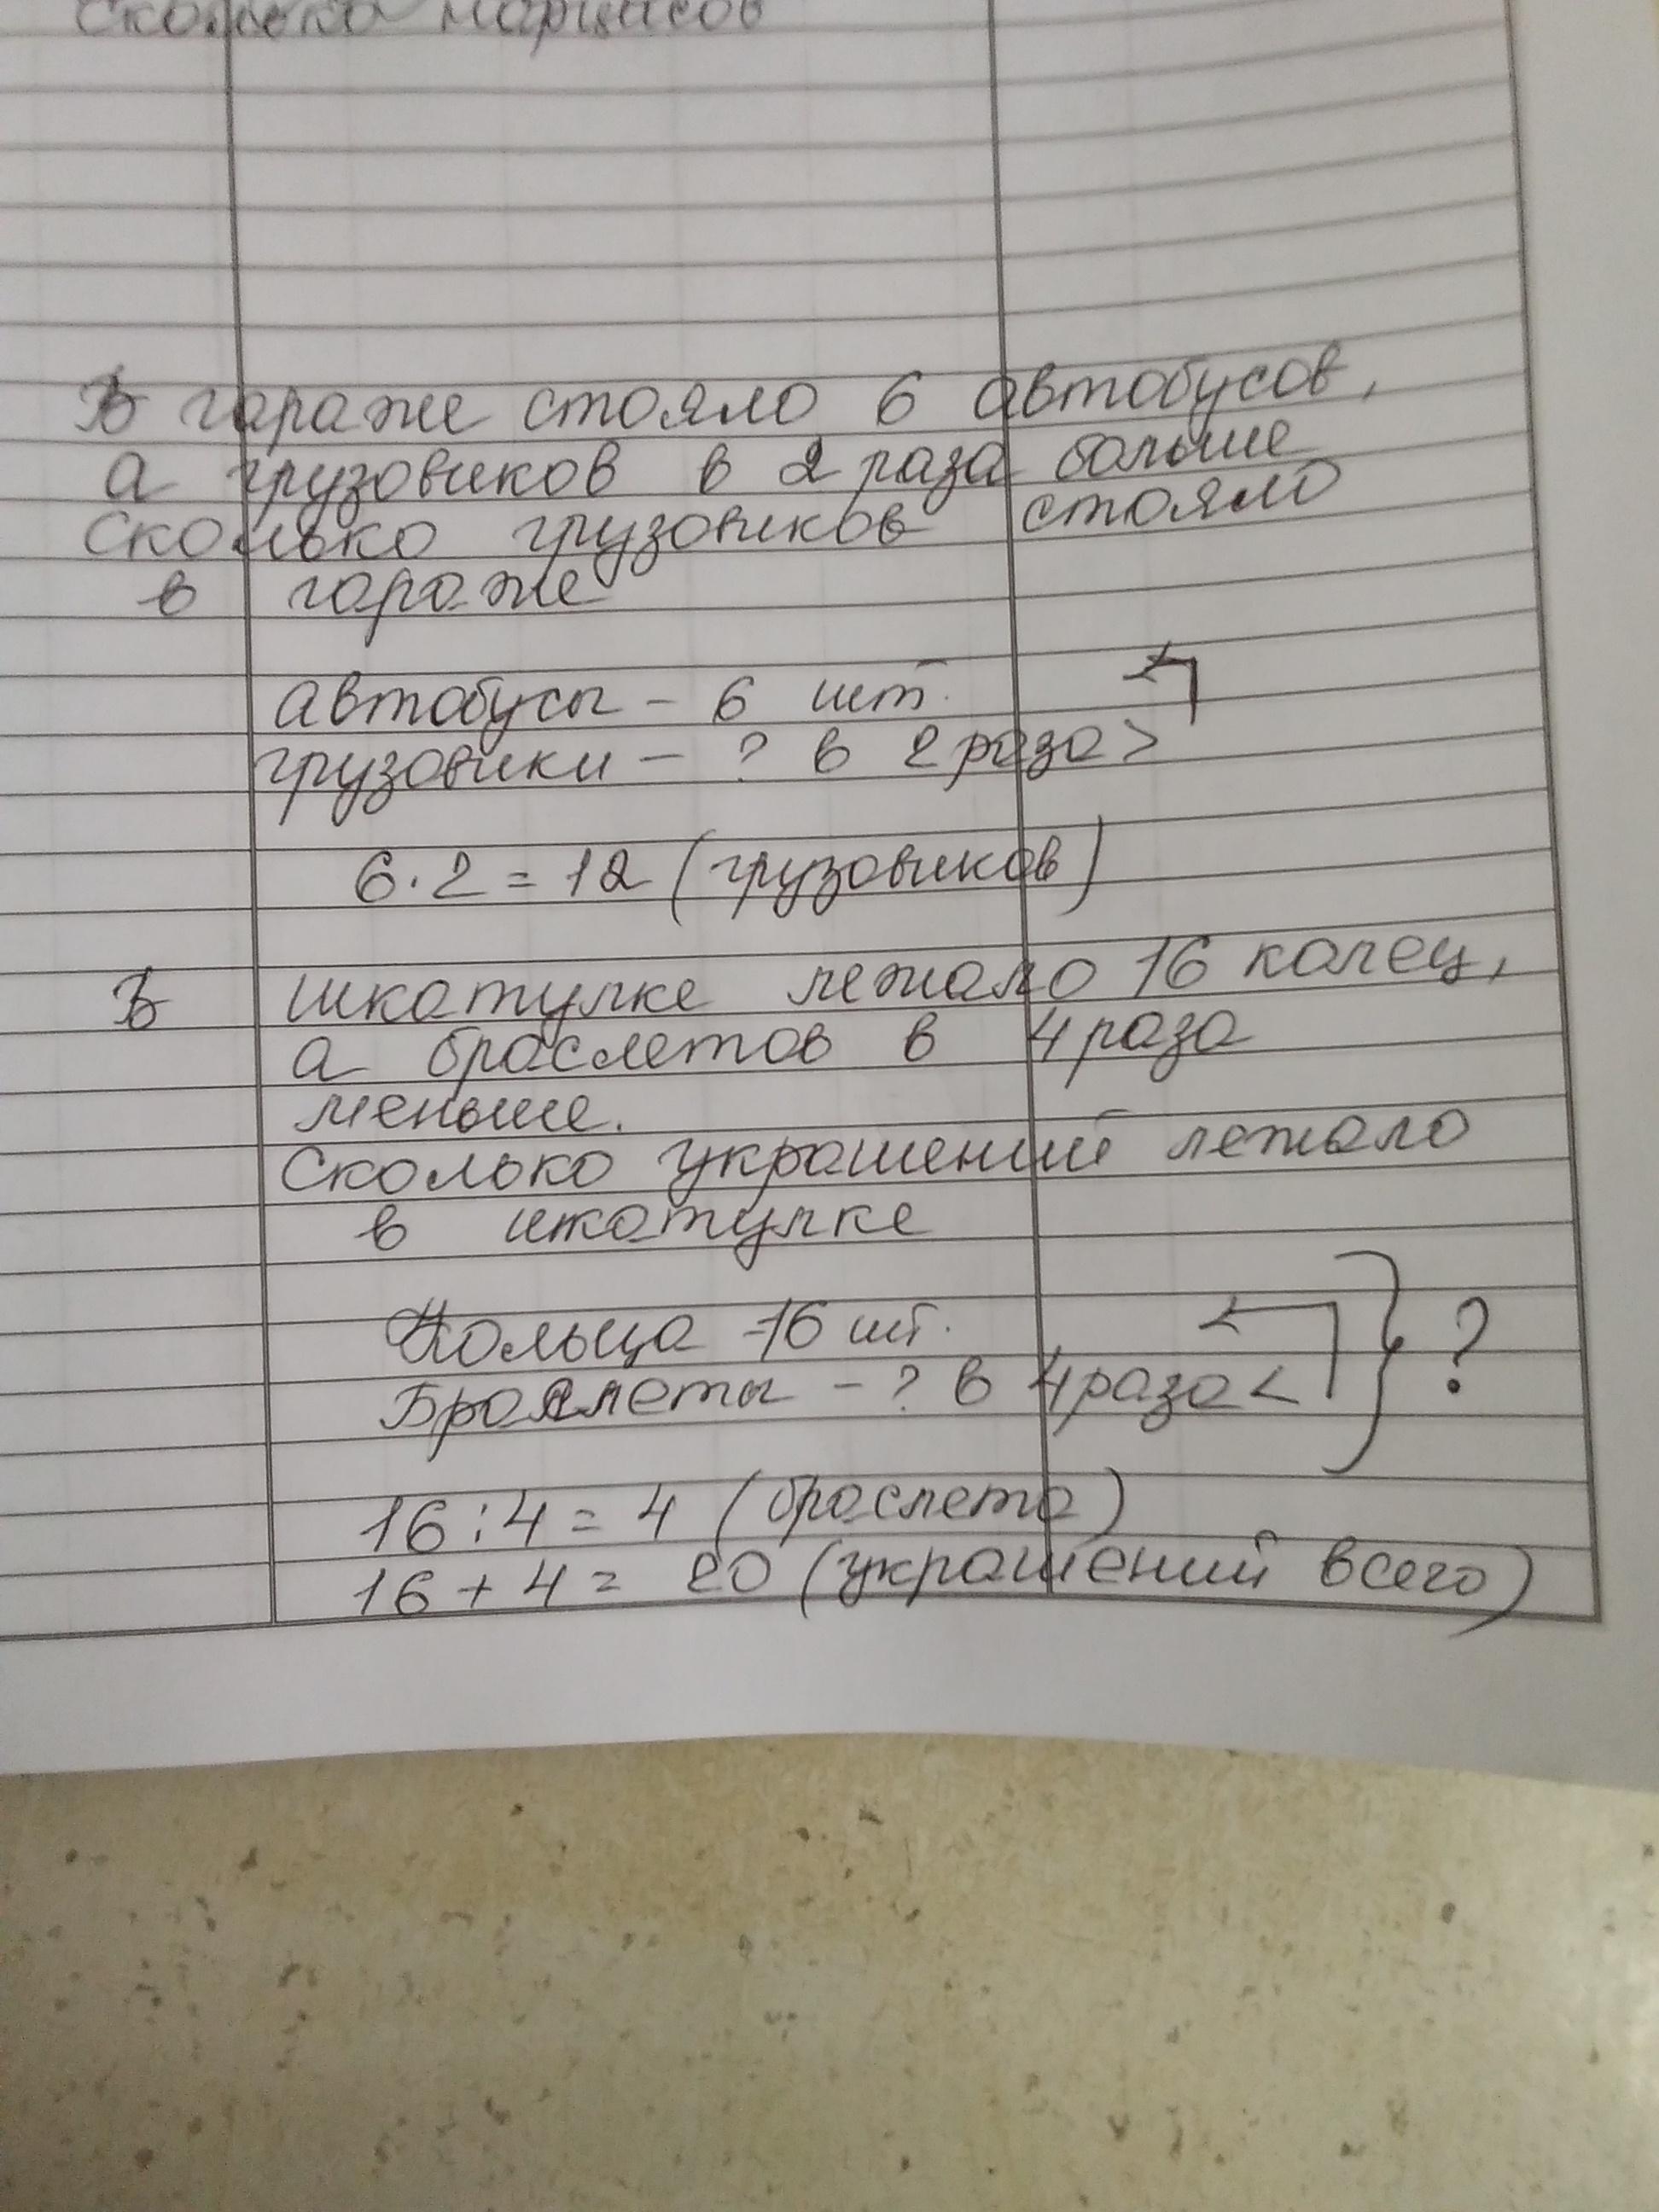 Сколько нарцисов
В гараже стояло 6 автобусов,
а грузовиков в 2 раза больше
Сколько грузовиков стояло
в гараже
автобусы - 6 шт.
грузовики - ? в 2 раза >
6 · 2 = 12 (грузовиков)
В шкатулке лежало 16 колец,
а браслетов в 4 раза
меньше.
Сколько украшений лежало
в шкатулке
Кольца - 16 шт.
Браслеты - ? в 4 раза < } ?
16 : 4 = 4 (браслета)
16 + 4 = 20 (украшений всего)